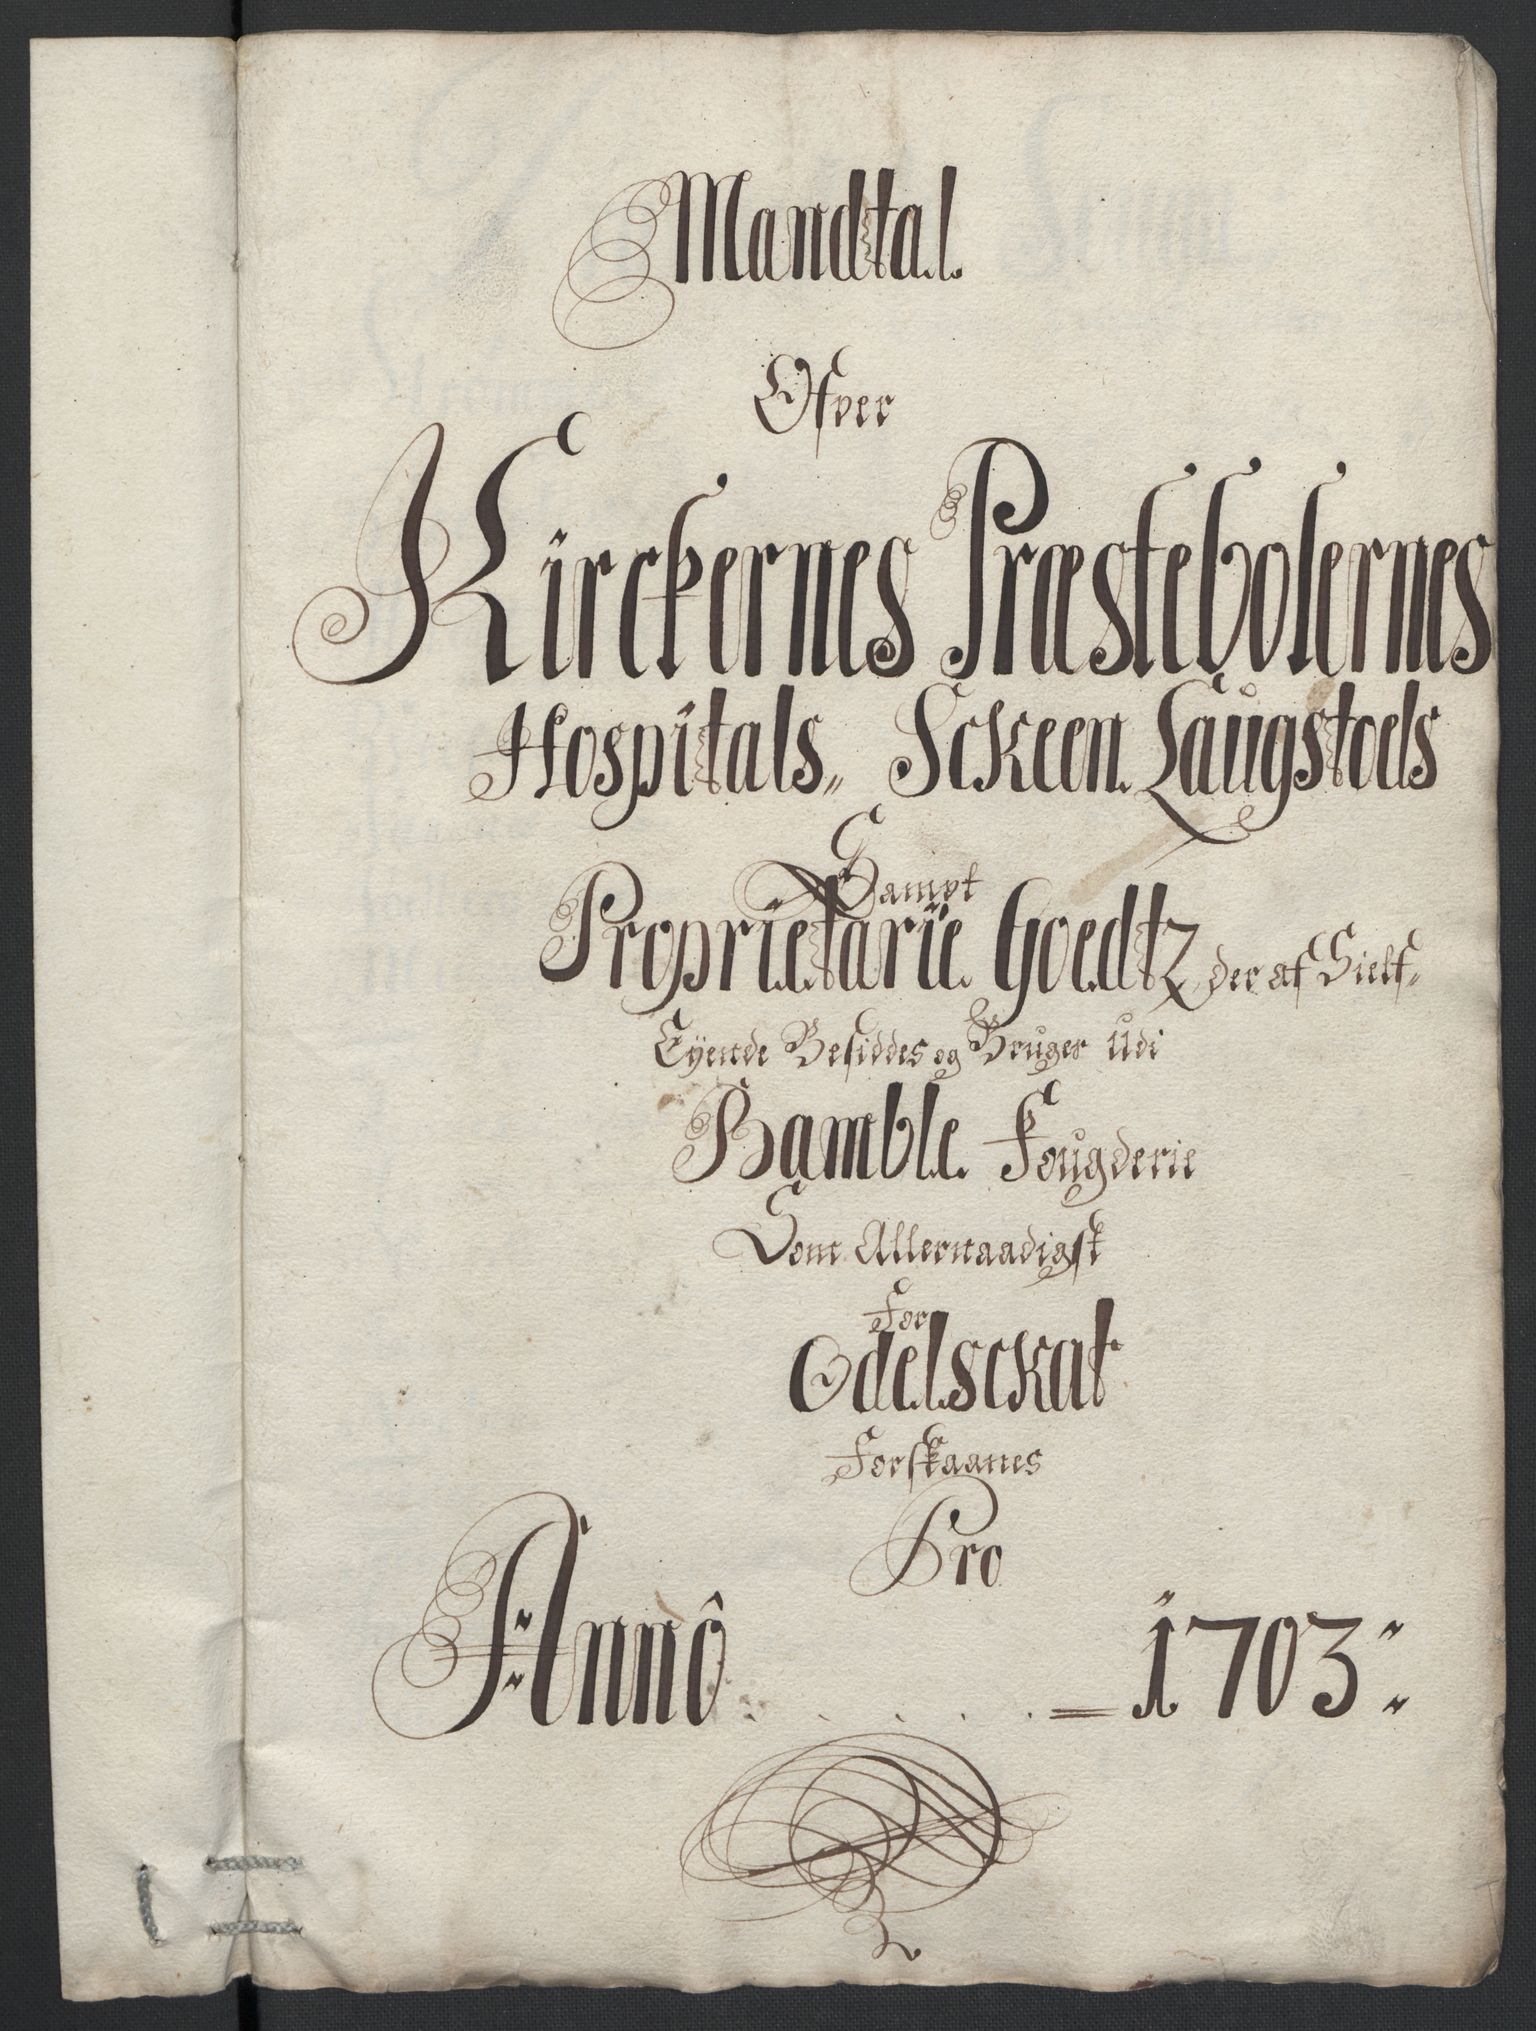 Mandtal.
Ofver
Kirckernes Præstebolernes
Hospitals,, Sckeen. Laugstoels
Sampt
Proprietarie. Goedtz der af Sielf-
Eÿende Besiddes og Bruger udi
Bamble. Fougderie
Som Allernaadigst
For
Odelsckat
Forskaanes
Pro
Annô . . . . . = 1703: